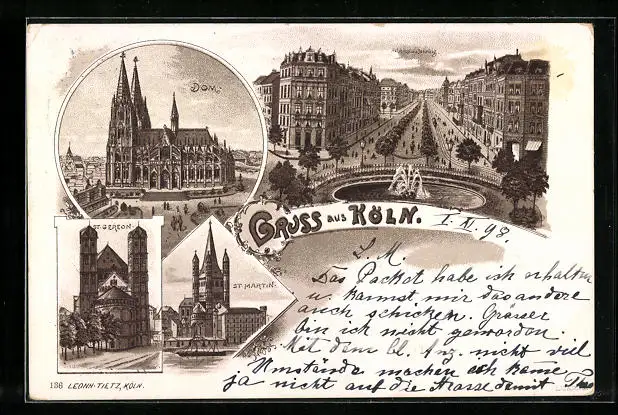 DOM.
GRUSS AUS KÖLN.
I. XI. 98.
ST. GEREON.
ST. MARTIN.
L. M.
Das Packet habe ich erhalten
u. kannst mir das andere
auch schicken. Grösser
bin ich nicht geworden.
Mit dem bl. Anz. nicht viel
Umstände machen ich kome
ja nicht auf die damit
136 LEONH. TIETZ, KÖLN.